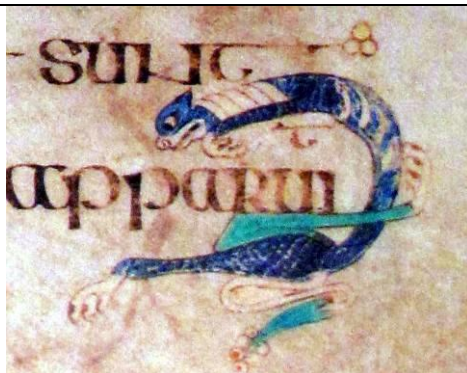 sunt
apparui